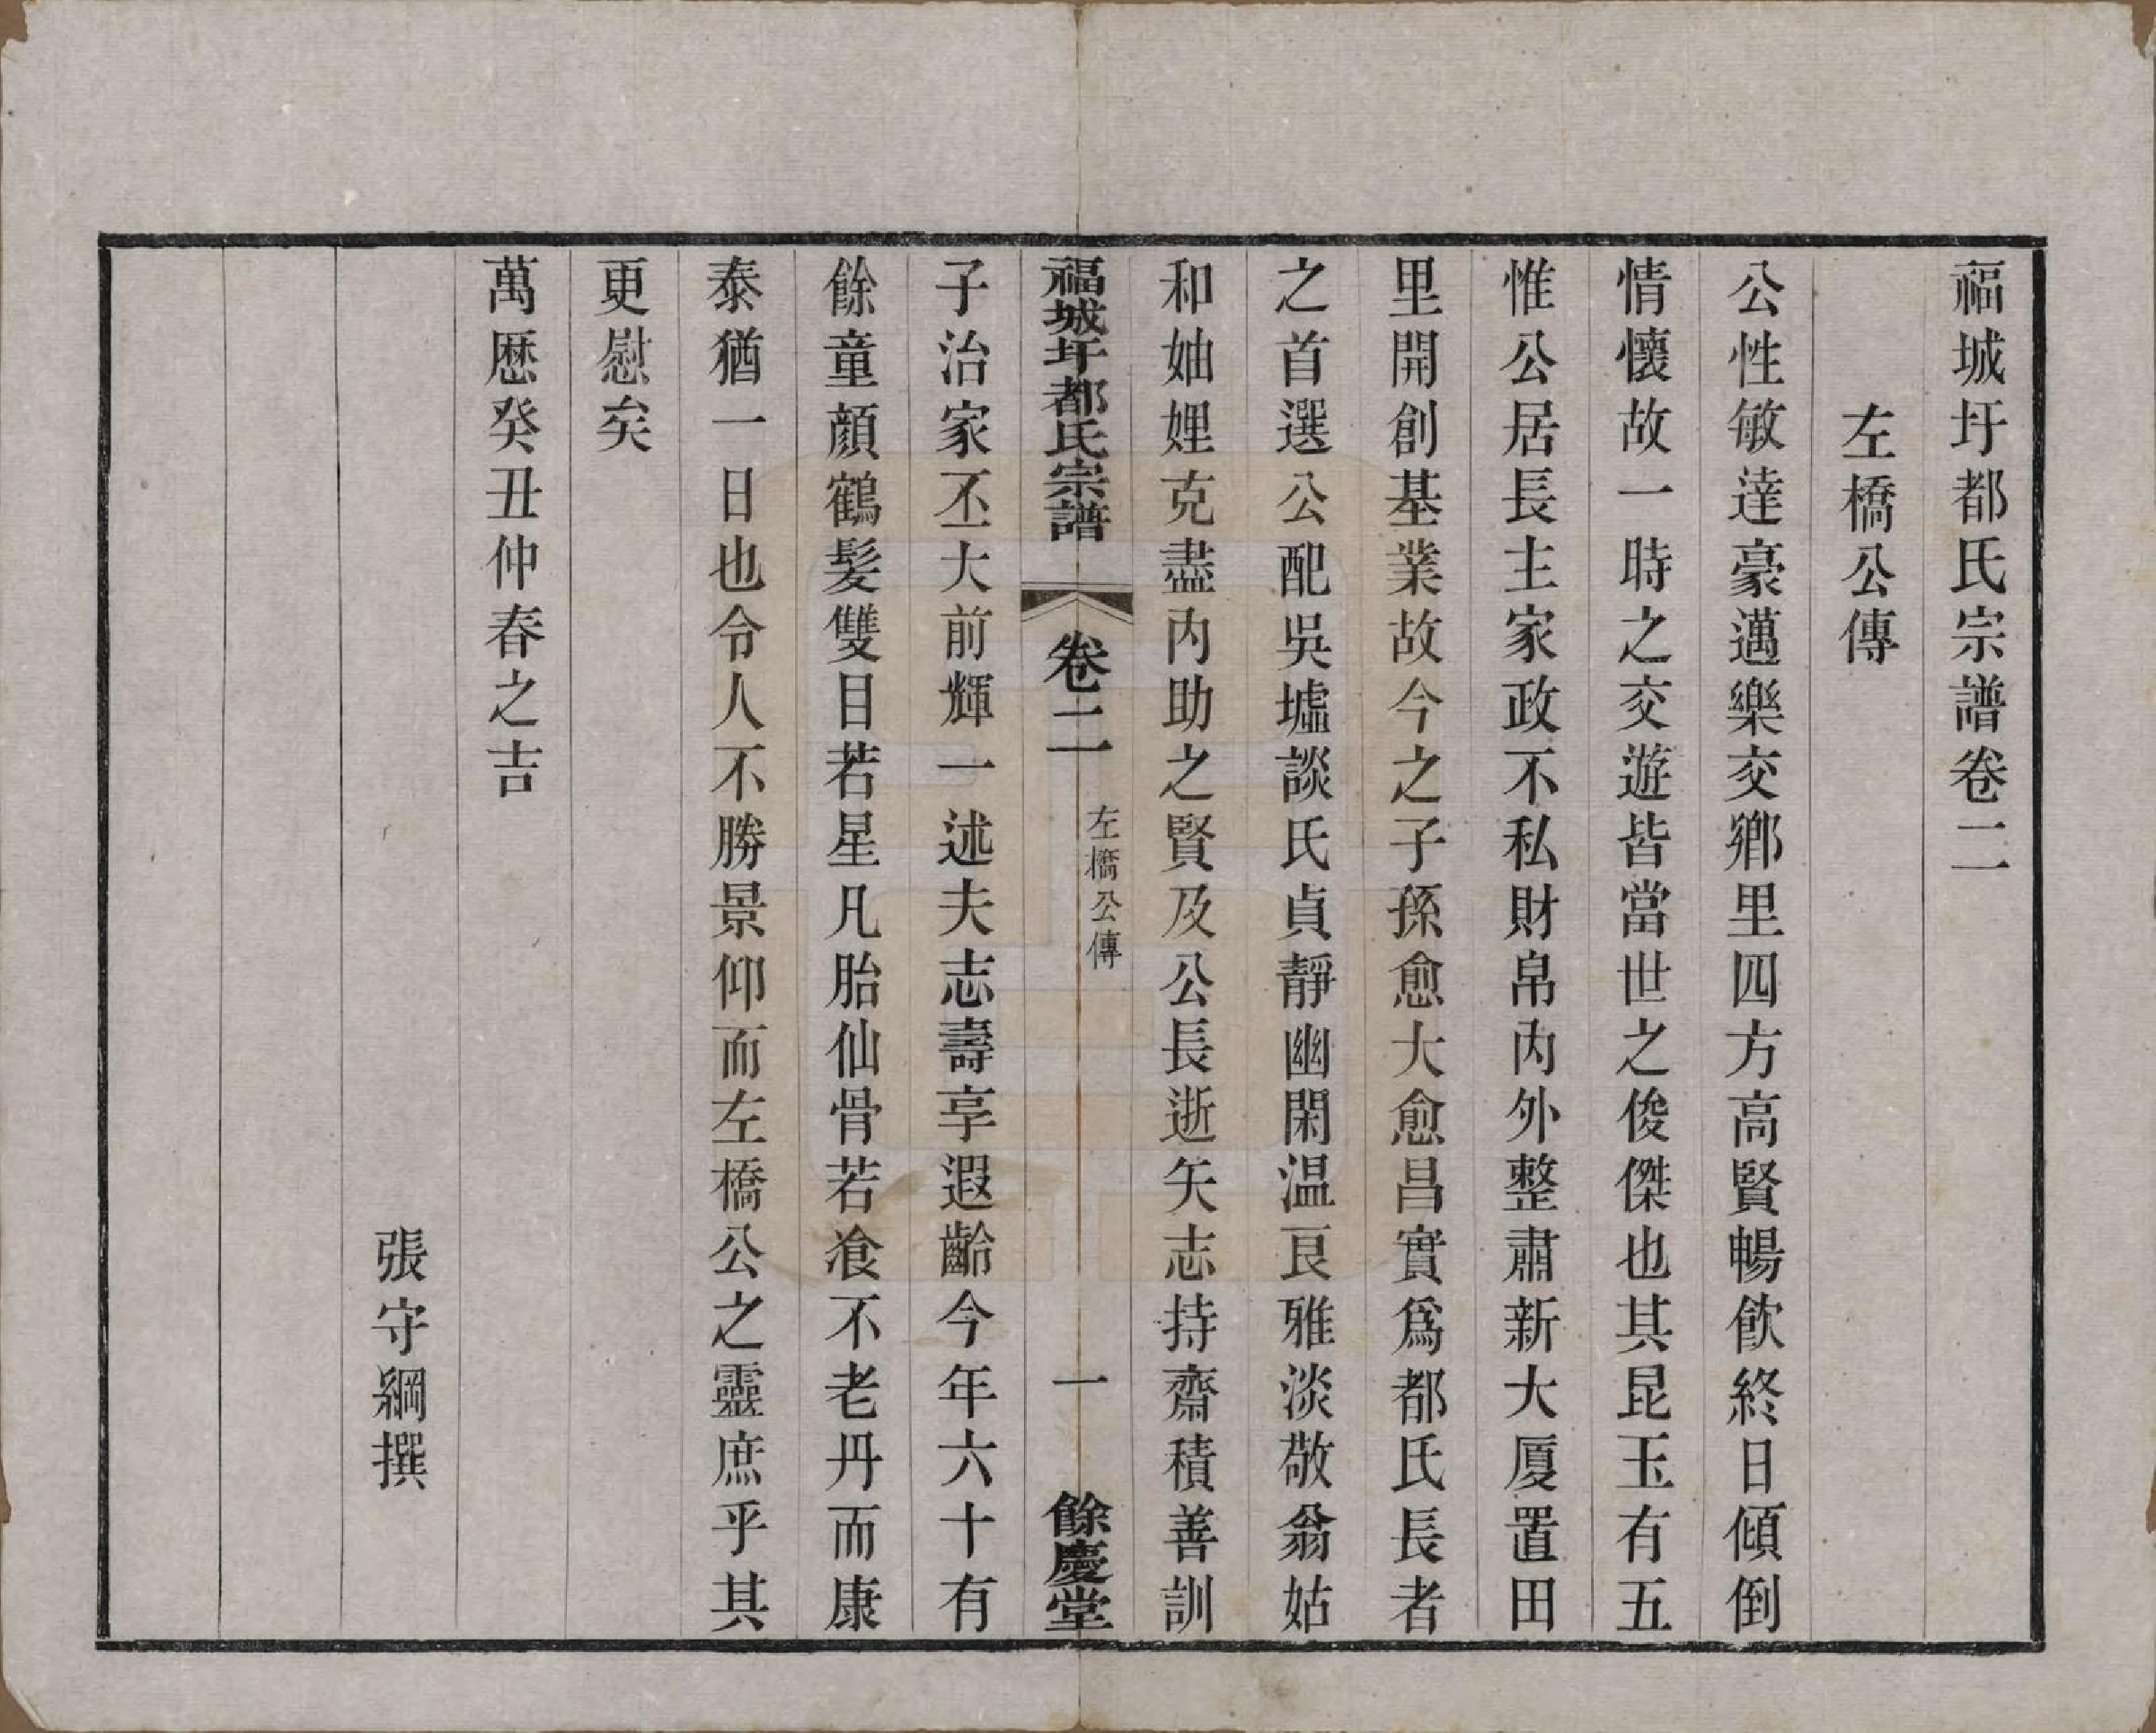 福城圩都氏宗譜卷二
左橋公傳
公性敏達豪邁樂交鄉里四方高賢暢飲終日傾倒
情懷故一時之交遊皆當世之俊傑也其昆玉有五
惟公居長主家政不私財帛內外整肅新大厦置田
里開創基業故今之子孫愈大愈昌實爲都氏長者
之首選公配吳墟談氏貞靜幽閑温良雅淡敬翁姑
和妯娌克盡內助之賢及公長逝矢志持齋積善訓
福城圩都氏宗譜 卷二 左橋公傳 一 餘慶堂
子治家丕大前輝一述夫志壽享遐齡今年六十有
餘童顔鶴髪雙目若星凡胎仙骨若飡不老丹而康
泰猶一日也令人不勝景仰而左橋公之靈庶乎其
更慰矣
萬厯癸丑仲春之吉
張守綱撰